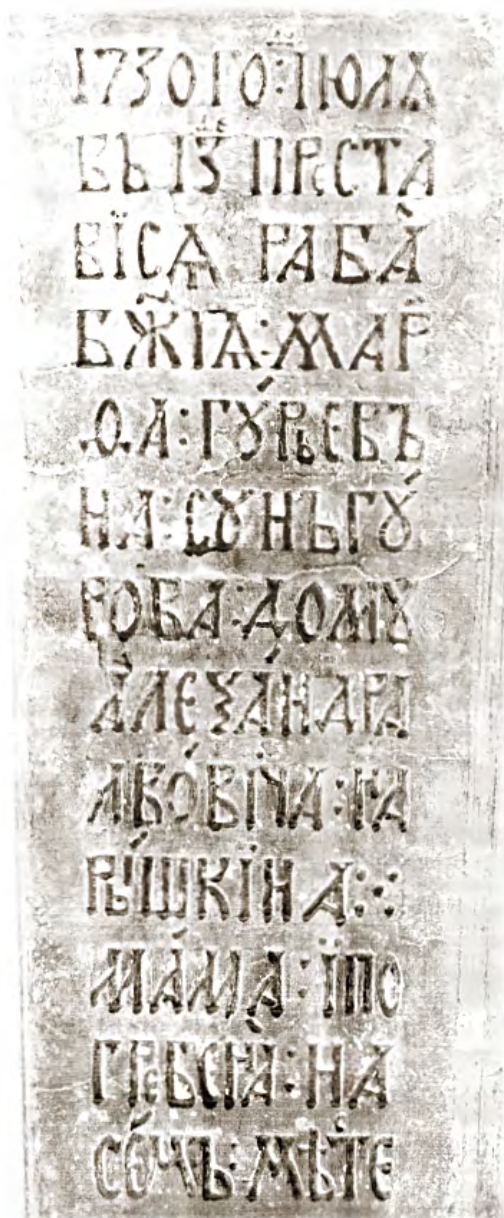 1730ГО:ІЮЛѦ
ВЪ ІЗ҃ ПРЕСТА
ВЇСѦ РАБА̀
БЖ҃ІѦ:МАР
ѲА:ГꙊ́РЬЕВЪ
НА:СꙊНЬГꙊ́
РОВА:ДОМꙊ
АЛЕѮА́НДРА
ЛВО́ВІЧА:НА
РЫ́ШКІНА:·:
МА́МА:ЇПО
ГРЕБЕНА̀:НА
СЕ́МЪ:МѢ́ТЕ